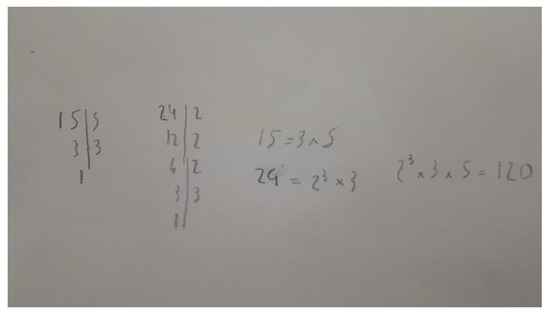 15|5
3|3
1
24|2
12|2
6|2
3|3
1|
15=3×5
24=2³×3
2³×3×5=120